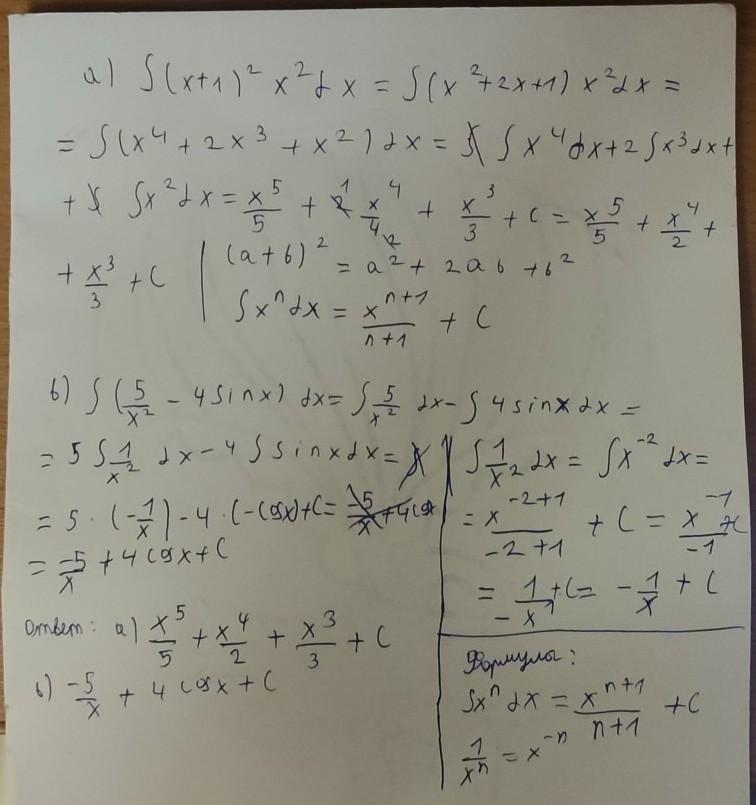 а) ∫(x+1)² x² dx = ∫(x²+2x+1) x² dx =
= ∫(x⁴ + 2x³ + x²) dx = ∫x⁴ dx + 2∫x³ dx +
+ ∫x² dx = x⁵/5 + 2 x⁴/4 + x³/3 + C = x⁵/5 + x⁴/2 +
+ x³/3 + C
(a+b)² = a² + 2ab + b²
∫xⁿ dx = xⁿ⁺¹/(n+1) + C
b) ∫(5/x² - 4 sin x) dx = ∫ 5/x² dx - ∫ 4 sin x dx =
= 5 ∫ 1/x² dx - 4 ∫ sin x dx =
= 5 · (-1/x) - 4 · (-cos x) + C = -5/x + 4 cos x
= -5/x + 4 cos x + C
∫ 1/x² dx = ∫ x⁻² dx =
= x⁻²⁺¹/(-2+1) + C = x⁻¹/-1 + C
= 1/(-x¹) + C = -1/x + C
Ответ: а) x⁵/5 + x⁴/2 + x³/3 + C
b) -5/x + 4 cos x + C
Формулы:
∫xⁿ dx = xⁿ⁺¹/(n+1) + C
1/xⁿ = x⁻ⁿ